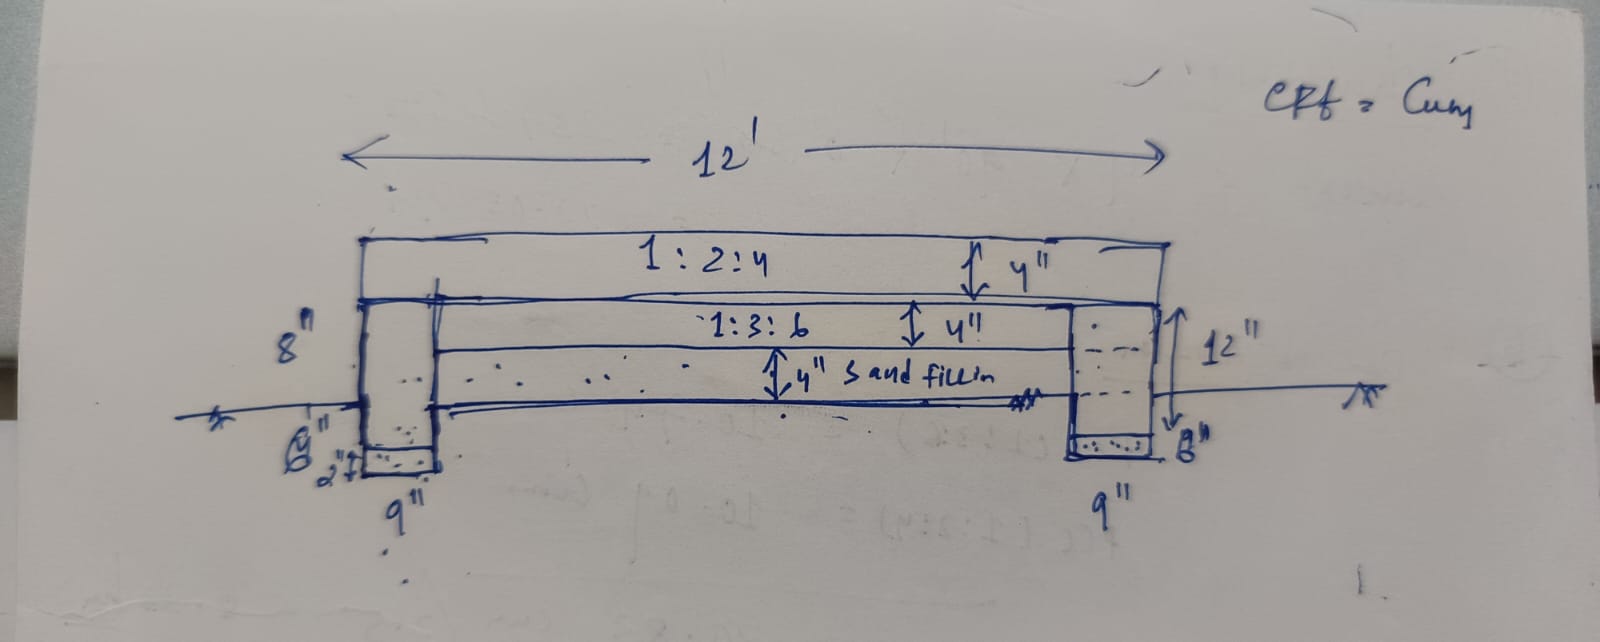 CFt = Cum
12'
1:2:4 4"
8" 1:3:6 4" 12"
4" Sand fillin
6" 2" 8"
9" 9"